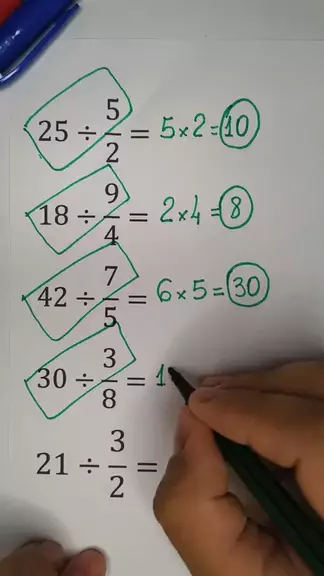 25 ÷ 5/2 = 5×2=10
18 ÷ 9/4 = 2×4=8
42 ÷ 7/5 = 6×5=30
30 ÷ 3/8 = 1
21 ÷ 3/2 =